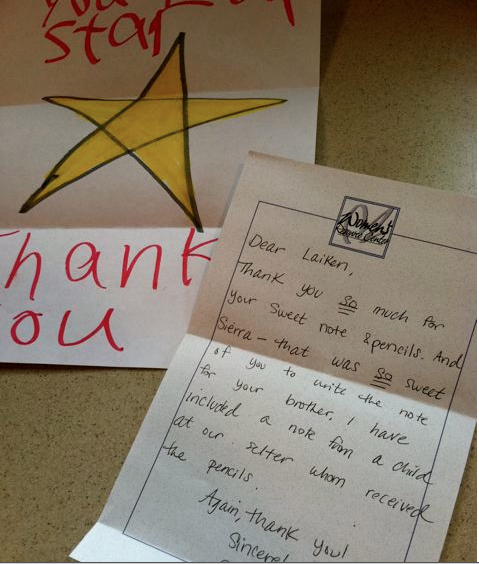 star
Thank
you
Women's
Resource Center
Dear Laiken,
Thank you so much for
your sweet note & pencils. And
Sierra - that was so sweet
of you to write the note
for your brother. I have
included a note from a child
at our selter whom received
the pencils.
Again, thank you!